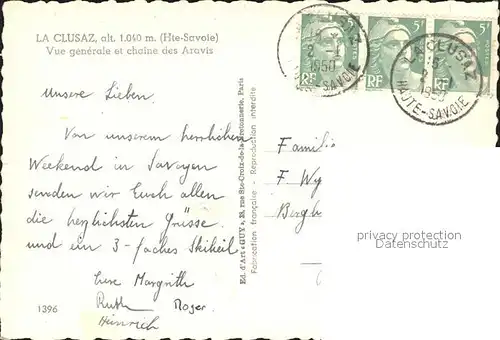 LA CLUSAZ, alt. 1.040 m. (Hte-Savoie)
Vue générale et chaîne des Aravis
Unsere Lieben.
Von unserem herrlichen
Weekend in Savoyen
senden wir Euch allen
die herzlichsten Grüsse
und ein 3-faches Skiheil
Eure Margrith
Ruth Moser
Heinrich
1396
Ed. d'Art «GUY», 23, rue Ste-Croix-de-la-Bretonnerie, Paris
Fabrication française - Reproduction interdite
LA CLUSAZ
15
2 - 1
1950
HAUTE-SAVOIE
RF
5F
RF
5F
RF
Familie
F Wy
Bergh
privacy protection
Datenschutz